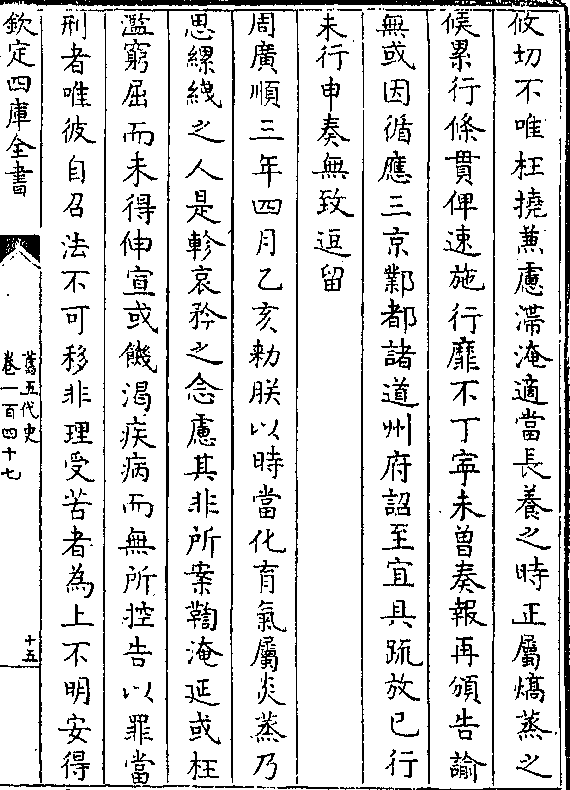 攸切不唯枉撓蕪慮滯淹適當長養之時正屬熇蒸之
候累行條貫俾速施行靡不丁寜未曾奏報再頒告諭
無或因循應三京鄴都諸道州府詔至宜具疏放已行
未行申奏無致逗留
周廣順三年四月乙亥勅朕以時當化育氣屬炎蒸乃
思縲絏之人是軫哀矜之念慮其非所案鞫淹延或枉
濫窮屈而未得伸宣或饑渴疾病而無所控告以罪當
刑者唯彼自召法不可移非理受苦者為上不明安得
欽定四庫全書
舊五代史
卷一百四十七
十五